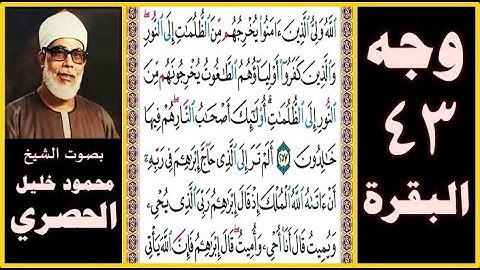 وجه
٤٣
البقرة
ٱللَّهُ وَلِىُّ ٱلَّذِينَ ءَامَنُوا۟ يُخْرِجُهُم مِّنَ ٱلظُّلُمَٰتِ إِلَى ٱلنُّورِ ۖ
وَٱلَّذِينَ كَفَرُوٓا۟ أَوْلِيَآؤُهُمُ ٱلطَّٰغُوتُ يُخْرِجُونَهُم مِّنَ
ٱلنُّورِ إِلَى ٱلظُّلُمَٰتِ ۗ أُو۟لَٰٓئِكَ أَصْحَٰبُ ٱلنَّارِ ۖ هُمْ فِيهَا
خَٰلِدُونَ ٢٥٧ أَلَمْ تَرَ إِلَى ٱلَّذِى حَآجَّ إِبْرَٰهِۦمَ فِى رَبِّهِۦٓ
أَنْ ءَاتَىٰهُ ٱللَّهُ ٱلْمُلْكَ إِذْ قَالَ إِبْرَٰهِۦمُ رَبِّىَ ٱلَّذِى يُحْىِۦ
وَيُمِيتُ قَالَ أَنَا۠ أُحْىِۦ وَأُمِيتُ ۖ قَالَ إِبْرَٰهِۦمُ فَإِنَّ ٱللَّهَ يَأْتِى
بصوت الشيخ
محمود خليل
الحصري